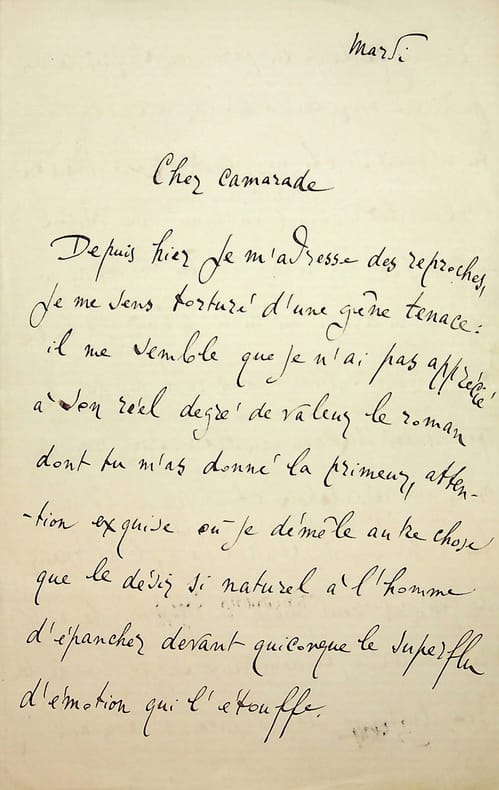 Mardi
Cher camarade
Depuis hier je m'adresse des reproches,
je me sens torturé d'une gêne tenace :
il me semble que je n'ai pas apprécié
à son réel degré de valeur le roman
dont tu m'as donné la primeur, atten-
-tion exquise où je démêle autre chose
que le désir si naturel à l'homme
d'épancher devant quiconque le superflu
d'émotion qui l'étouffe.